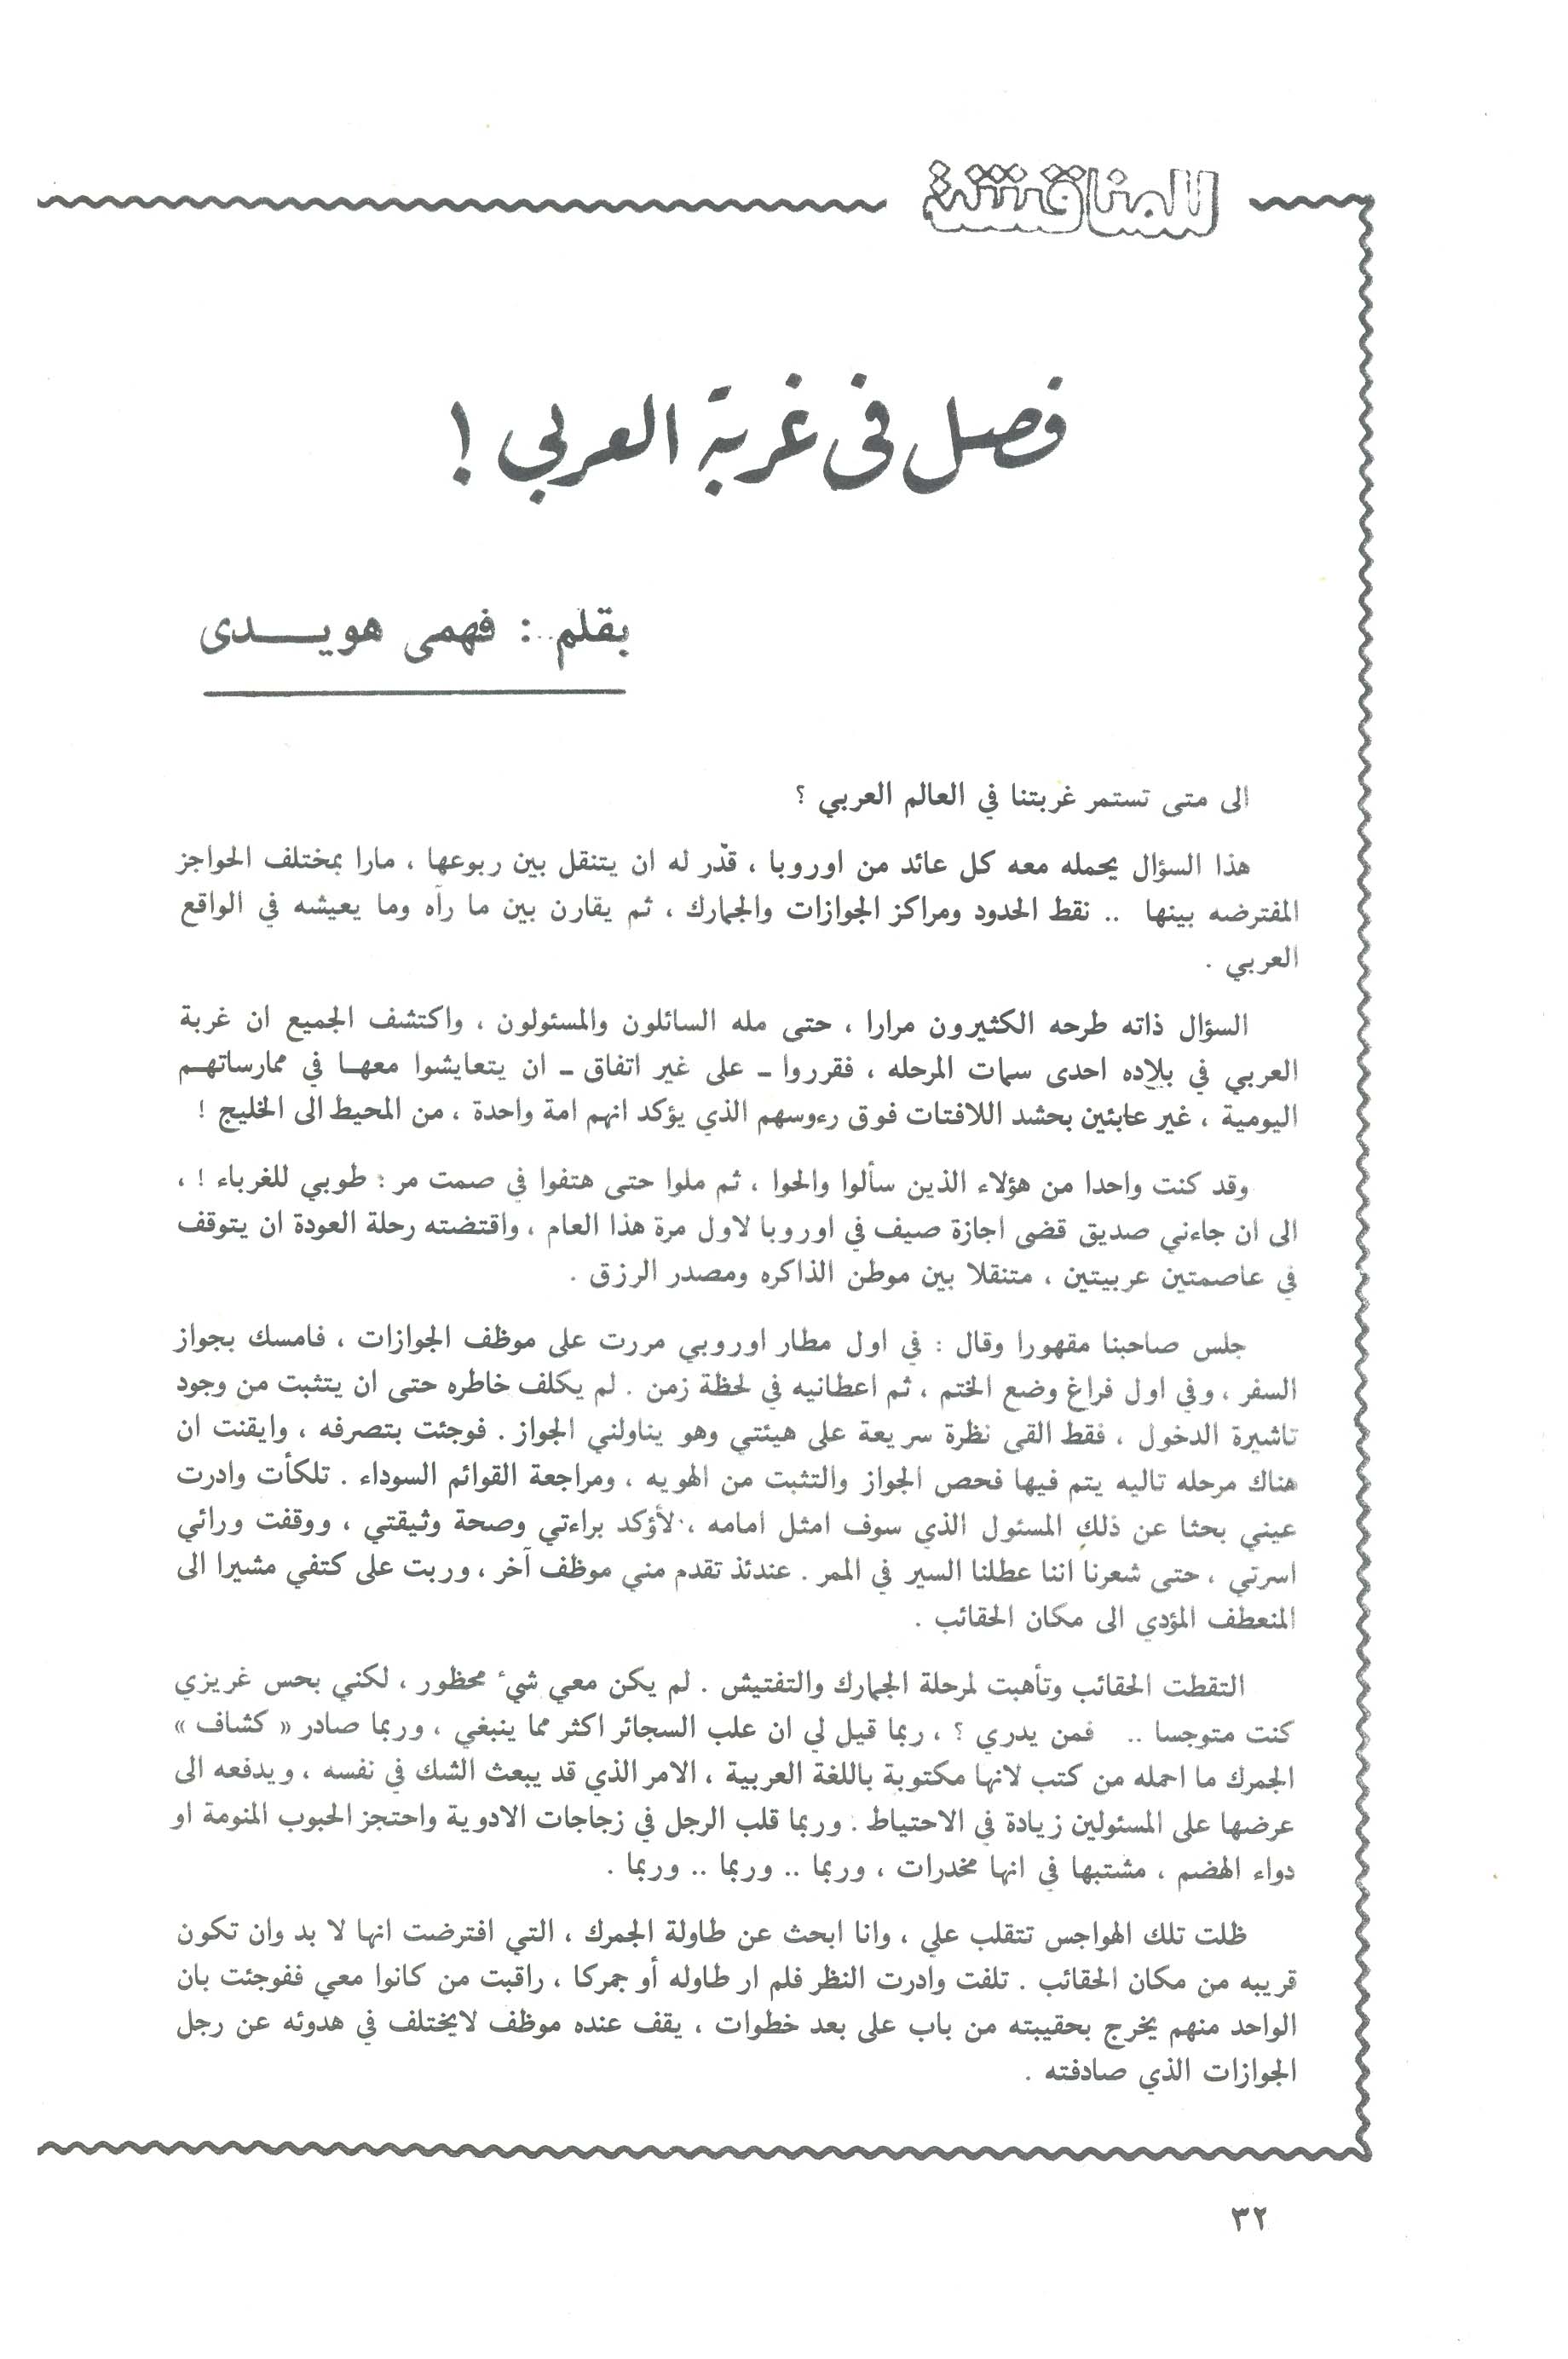 للمناقشة
فصل في غربة العربي !
بقلم : فهمى هويـــدى
الى متى تستمر غربتنا في العالم العربي ؟
هذا السؤال يحمله معه كل عائد من اوروبا ، قدّر له ان يتنقل بين ربوعها ، مارا بمختلف الحواجز
المفترضه بينها .. نقط الحدود ومراكز الجوازات والجمارك ، ثم يقارن بين ما رآه وما يعيشه في الواقع
العربي .
السؤال ذاته طرحه الكثيرون مرارا ، حتى مله السائلون والمسئولون ، واكتشف الجميع ان غربة
العربي في بلاده احدى سمات المرحله ، فقرروا ـ على غير اتفاق ـ ان يتعايشوا معهـا في ممارساتهـم
اليومية ، غير عابئين بحشد اللافتات فوق رءوسهم الذي يؤكد انهم امة واحدة ، من المحيط الى الخليج !
وقد كنت واحدا من هؤلاء الذين سألوا والحوا ، ثم ملوا حتى هتفوا في صمت مر : طوبي للغرباء ! ،
الى ان جاءني صديق قضى اجازة صيف في اوروبا لاول مرة هذا العام ، واقتضته رحلة العودة ان يتوقف
في عاصمتين عربيتين ، متنقلا بين موطن الذاكره ومصدر الرزق .
جلس صاحبنا مقهورا وقال : في اول مطار اوروبي مررت على موظف الجوازات ، فامسك بجواز
السفر ، وفي اول فراغ وضع الختم ، ثم اعطانيه في لحظة زمن . لم يكلف خاطره حتى ان يتثبت من وجود
تاشيرة الدخول ، فقط القى نظرة سريعة على هيئتي وهو يناولني الجواز . فوجئت بتصرفه ، وايقنت ان
هناك مرحله تاليه يتم فيها فحص الجواز والتثبت من الهويه ، ومراجعة القوائم السوداء . تلكأت وادرت
عيني بحثا عن ذلك المسئول الذي سوف امثل امامه ، لأؤكد براءتي وصحة وثيقتي ، ووقفت ورائي
اسرتي ، حتى شعرنا اننا عطلنا السير في الممر . عندئذ تقدم مني موظف آخر ، وربت على كتفي مشيرا الى
المنعطف المؤدي الى مكان الحقائب .
التقطت الحقائب وتأهبت لمرحلة الجمارك والتفتيش . لم يكن معي شيء محظور ، لكني بحس غريزي
كنت متوجسا .. فمن يدري ؟ ، ربما قيل لي ان علب السجائر اكثر مما ينبغي ، وربما صادر « كشاف »
الجمرك ما احمله من كتب لانها مكتوبة باللغة العربية ، الامر الذي قد يبعث الشك في نفسه ، ويدفعه الى
عرضها على المسئولين زيادة في الاحتياط . وربما قلب الرجل في زجاجات الادوية واحتجز الحبوب المنومة او
دواء الهضم ، مشتبها في انها مخدرات ، وربما .. وربما .. وربما .
ظلت تلك الهواجس تتقلب علي ، وانا ابحث عن طاولة الجمرك ، التي افترضت انها لا بد وان تكون
قريبه من مكان الحقائب . تلفت وادرت النظر فلم ار طاوله أو جمركا ، راقبت من كانوا معي ففوجئت بان
الواحد منهم يخرج بحقيبته من باب على بعد خطوات ، يقف عنده موظف لايختلف في هدوئه عن رجل
الجوازات الذي صادفته .
٣٢